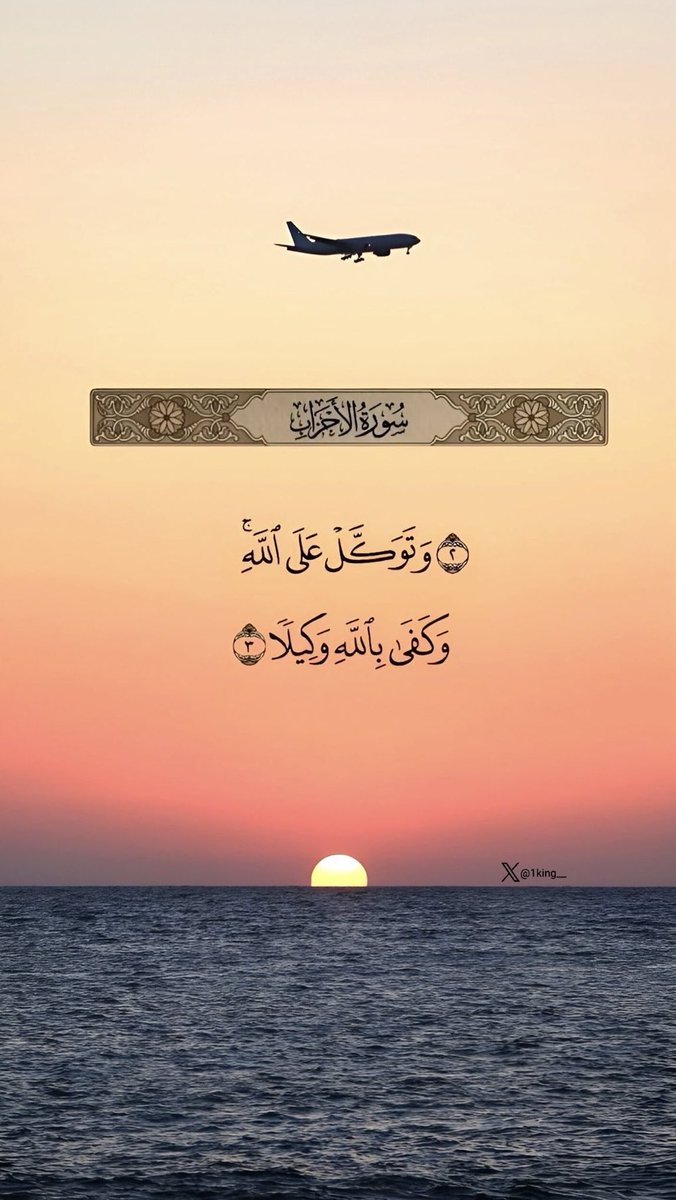 سُورَةُ الأَحْزَابِ
٢ وَتَوَكَّلْ عَلَى ٱللَّهِ ۚ
وَكَفَىٰ بِٱللَّهِ وَكِيلًا ٣
X @1king__